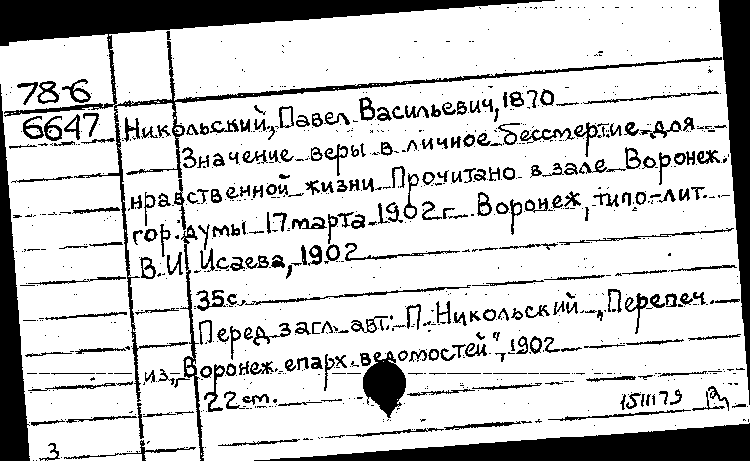 78-6
6647
Никольский, Павел Васильевич, 1870
Значение веры в личное бессмертие для
нравственной жизни Прочитано в зале Воронеж.
гор. думы 17 марта 1902 г Воронеж, типо-лит
В.И. Исаева, 1902
35с.
Перед загл. авт: П. Никольский „Перепеч
из „Воронеж. епарх. ведомостей", 1902
22 см.
151179
3